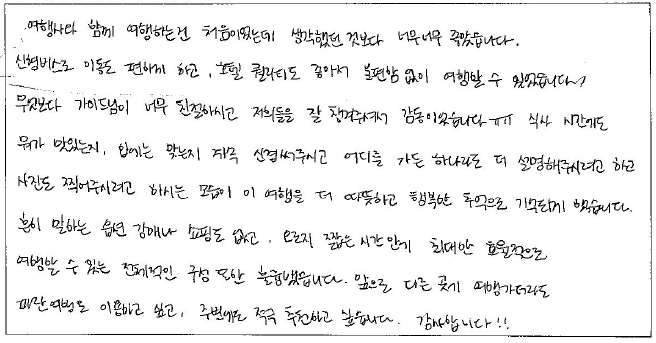 여행사와 함께 여행하는건 처음이였는데 생각했던 것보다 너무너무 좋았습니다.
신형버스로 이동도 편하게 하고, 호텔 퀄리티도 좋아서 불편함 없이 여행할 수 있었습니다~
무엇보다 가이드님이 너무 친절하시고 저희들을 잘 챙겨주셔서 감동이었습니다ㅠㅠ 식사 시간에도
뭐가 맛있는지, 입에는 맞는지 계속 신경써주시고 어디를 가든 하나라도 더 설명해주시려고 하고
사진도 찍어주시려고 하시는 모습이 이 여행을 더 따뜻하고 행복한 추억으로 기억되게 했습니다.
흔히 말하는 옵션 강매나 쇼핑도 없고, 오로지 짧은 시간 안에 최대한 효율적으로
여행할 수 있는 전체적인 구성 또한 훌륭했습니다. 앞으로 다른 곳에 여행가더라도
파란여행을 이용하고 싶고, 주변에도 적극 추천하고 싶습니다. 감사합니다!!